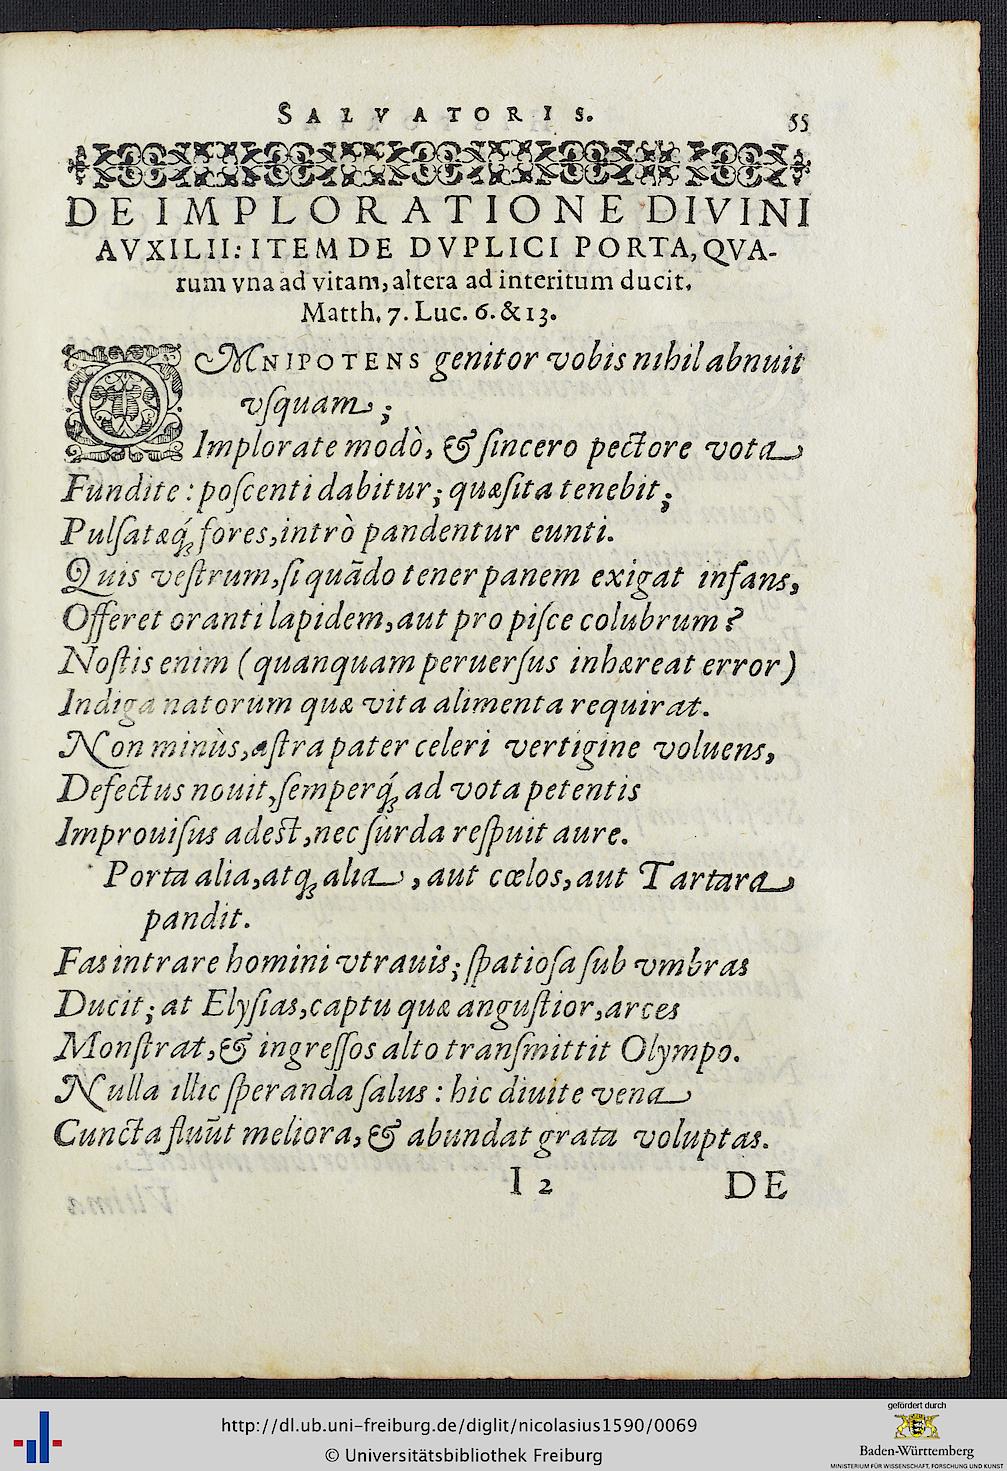 SALVATORIS. 55
DE IMPLORATIONE DIVINI
AVXILII: ITEM DE DVPLICI PORTA, QVA-
rum vna ad vitam, altera ad interitum ducit.
Matth. 7. Luc. 6. & 13.
OMNIPOTENS genitor vobis nihil abnuit
vſquam;
Implorate modò, & ſincero pectore vota
Fundite: poſcenti dabitur; quæſita tenebit;
Pulſatæq́ꝫ fores, intrò pandentur eunti.
Quis veſtrum, ſi quãdo tener panem exigat infans,
Offeret oranti lapidem, aut pro piſce colubrum?
Noſtis enim (quanquam peruerſus inhæreat error)
Indiga natorum quæ vita alimenta requirat.
Non minùs, aſtra pater celeri vertigine voluens,
Defectus nouit, ſemperq́ꝫ ad vota petentis
Improuiſus adest, nec ſurda reſpuit aure.
Porta alia, atqꝫ alia, aut cœlos, aut Tartara
pandit.
Fas intrare homini vtrauis; ſpatioſa ſub vmbras
Ducit; at Elyſias, captu quæ anguſtior, arces
Monſtrat, & ingreſſos alto tranſmittit Olympo.
Nulla illic ſperanda ſalus: hic diuite vena
Cuncta fluũt meliora, & abundat grata voluptas.
I 2 DE
http://dl.ub.uni-freiburg.de/diglit/nicolasius1590/0069
© Universitätsbibliothek Freiburg
gefördert durch
Baden-Württemberg
MINISTERIUM FÜR WISSENSCHAFT, FORSCHUNG UND KUNST